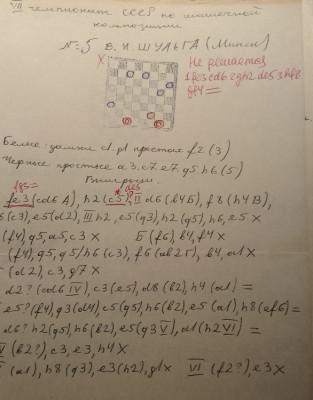 VII чемпионат СССР по шашечной
композиции
№ 5 В. И. ШУЛЬГА (Минск)
X
Не решается
1 fe3 cd6 2 gh2 de5 3 hf8
gf4 =
Белые: дамки c1, g1 простая f2 (3)
Черные простые a3, c7, e7, g5, h6 (5)
Выигрыш.
fg5=
de5
fe3 (cd6 A), h2 (c5), II d6 (b4 Б), f8 (h4 В),
(c3), e5 (d2), III h2, e5 (g3), h2 (g5), h6, e5 X
(f4), g5, a5, c3 X Б (f6), b4, f4 X
(f4), g5, g5/h6 (c3), f6 (ab2 Г), b4, a1 X
(d2), c3, g7 X
d2? (cd6 IV), c3 (e5), d8 (b2), h4 (a1) =
e5? (f4), g3 (d4), c5 (g5), h6 (b2), e5 (a1), h8 (ef6) =
d6? h2 (g5), h6 (b2), e5 (g3 V), a1 (h2 VI) =
V (b2?), c3, e3, h4 X
(a1), h8 (g3), e3 (h2), g1 X VI (f2?), e3 X